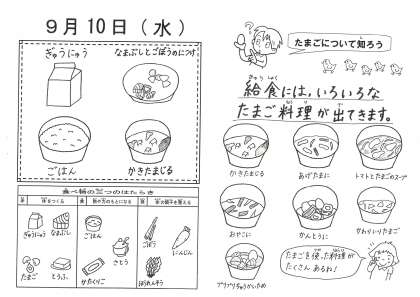 9月10日(水)
ぎゅうにゅう
なまぶしとごぼうのにつけ
ごはん
かきたまじる
食べ物の三つのはたらき
体をつくる
熱や力のもとになる
体の調子を整える
ぎゅうにゅう
なまぶし
たまご
とうふ
ごはん
さとう
かたくりこ
ごぼう
にんじん
ほうれんそう
たまごについて知ろう
きゅうしょく
給食には、いろいろな
たまご料理が出てきます。
かきたまじる
あげたまに
トマトとたまごのスープ
おやこに
かんとうに
プリプリちゅうかいため
たまごを使った料理が
たくさんあるね!